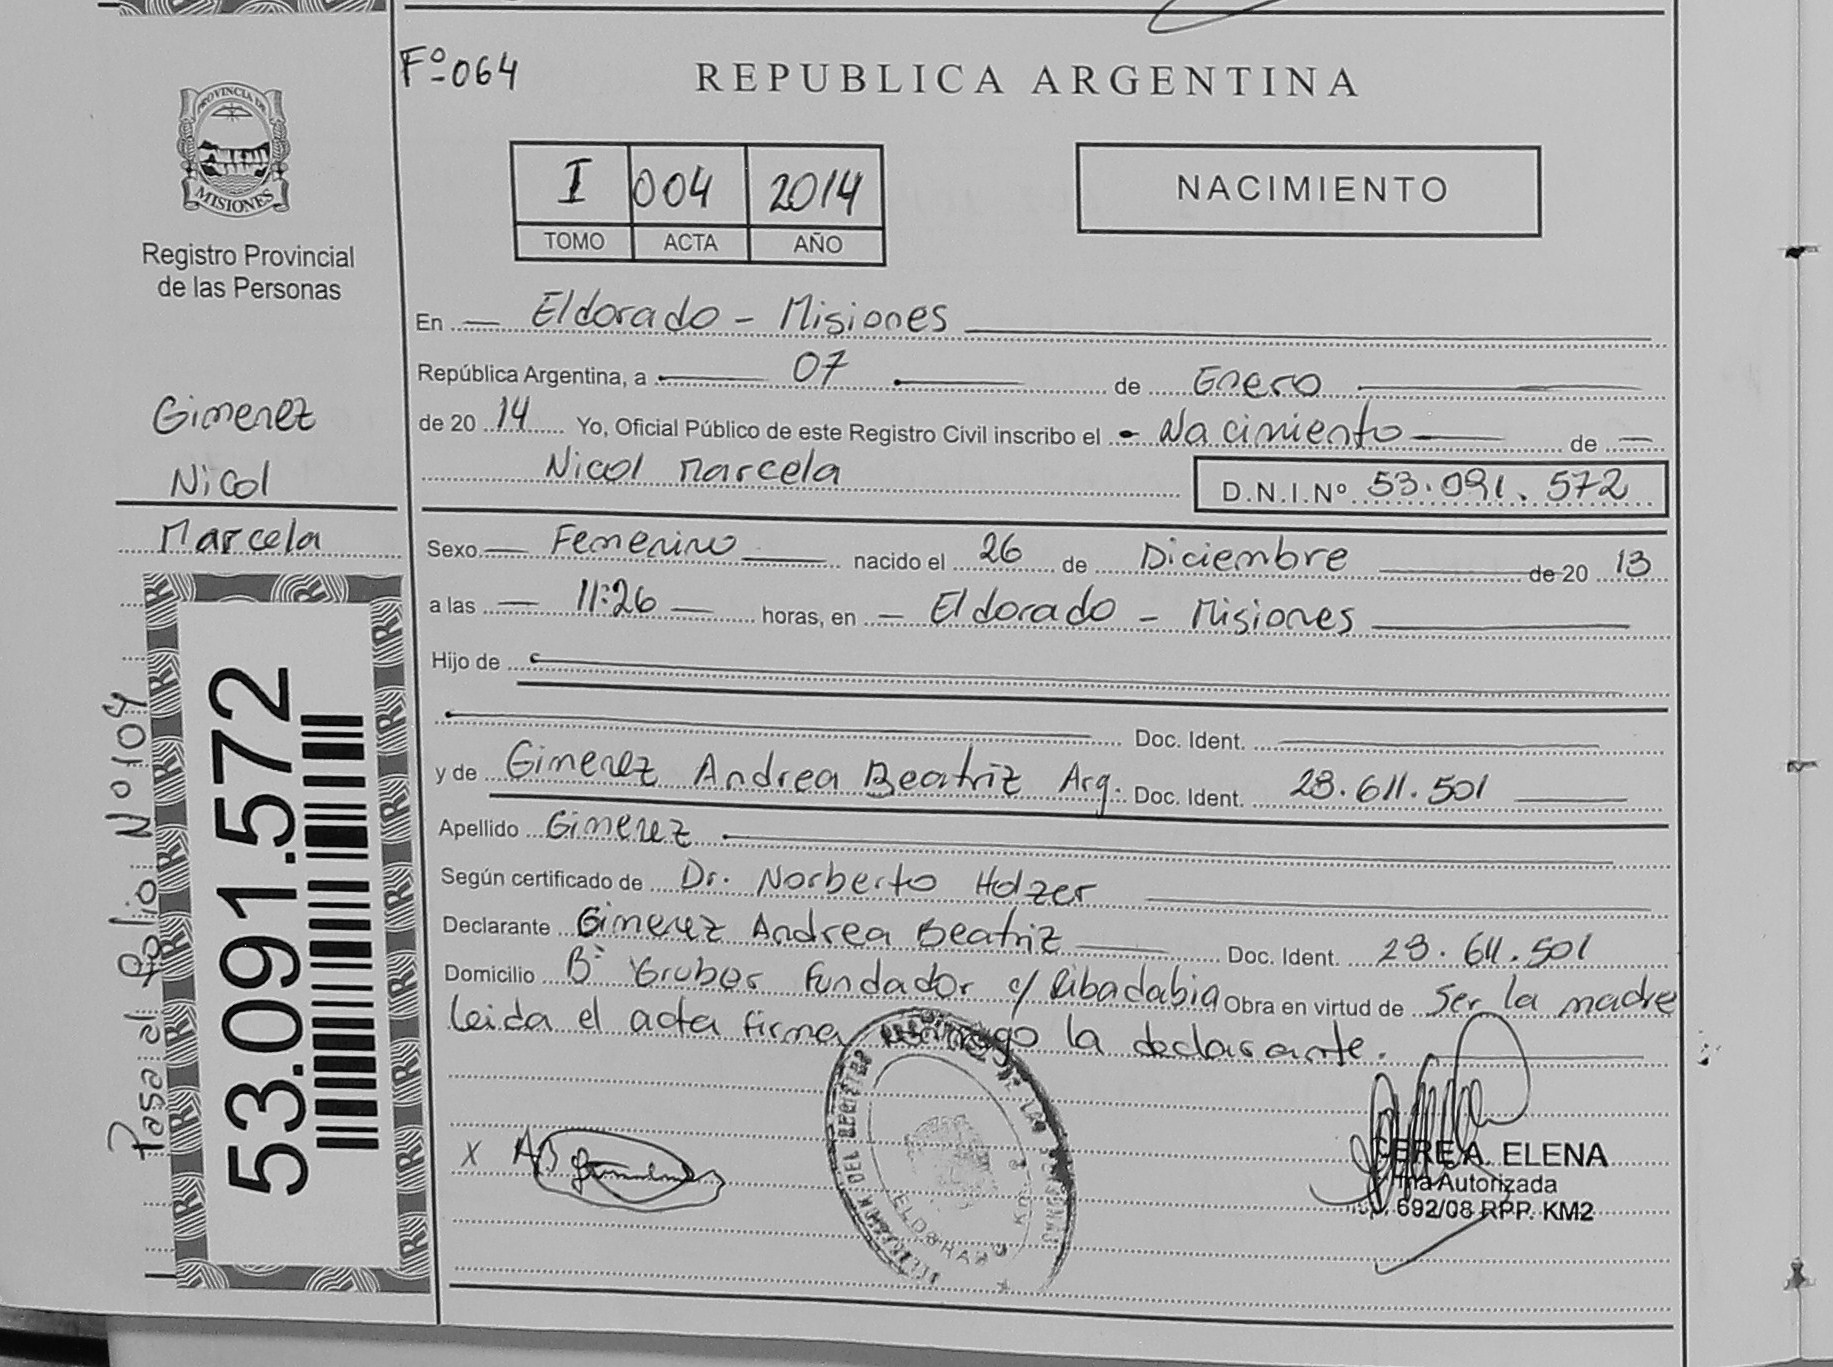 Fº 064
REPUBLICA ARGENTINA
PROVINCIA DE
MISIONES
Registro Provincial
de las Personas
I 004 2014
TOMO ACTA AÑO
NACIMIENTO
En Eldorado - Misiones
República Argentina, a 07 de Enero
de 20 14 Yo, Oficial Público de este Registro Civil inscribo el Nacimiento de
Nicol Marcela D.N.I.Nº 53.091.572
Gimenez
Nicol
Marcela
Sexo Femenino nacido el 26 de Diciembre de 20 13
a las 11:26 horas, en Eldorado - Misiones
Hijo de
Doc. Ident.
y de Gimenez Andrea Beatriz Arg. Doc. Ident. 23.611.501
Apellido Gimenez
Según certificado de Dr. Norberto Holzer
Declarante Gimenez Andrea Beatriz Doc. Ident. 23.611.501
Domicilio Bº Fundador c/ Ribadabia Obra en virtud de Ser la madre
leida el acta firma la declarante.
53.091.572
Pasa al folio Nº 104
X
ELDORADO
Km 2
CERE A. ELENA
Autorizada
692/08 RPP. KM2